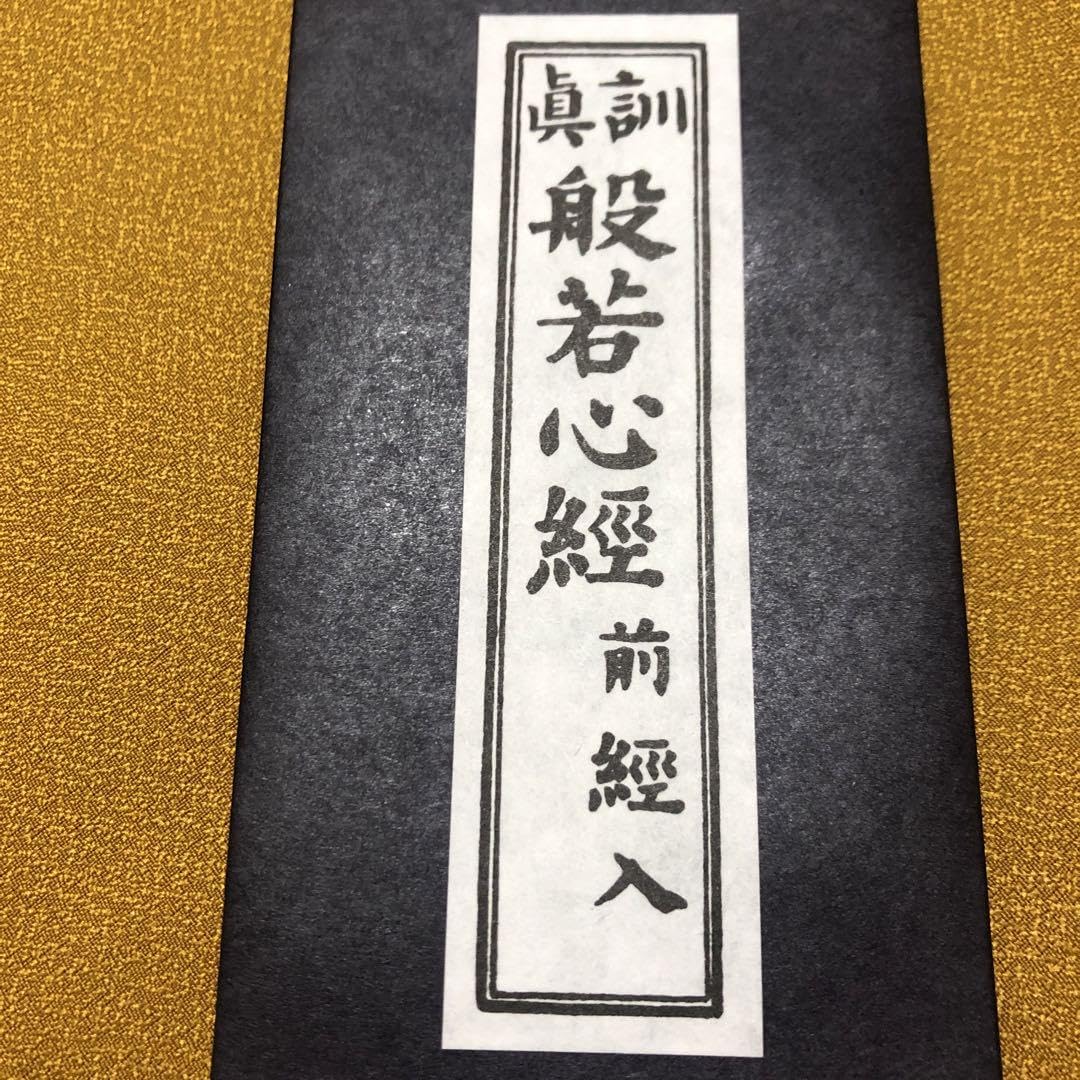 訓眞
般若心經
前經入